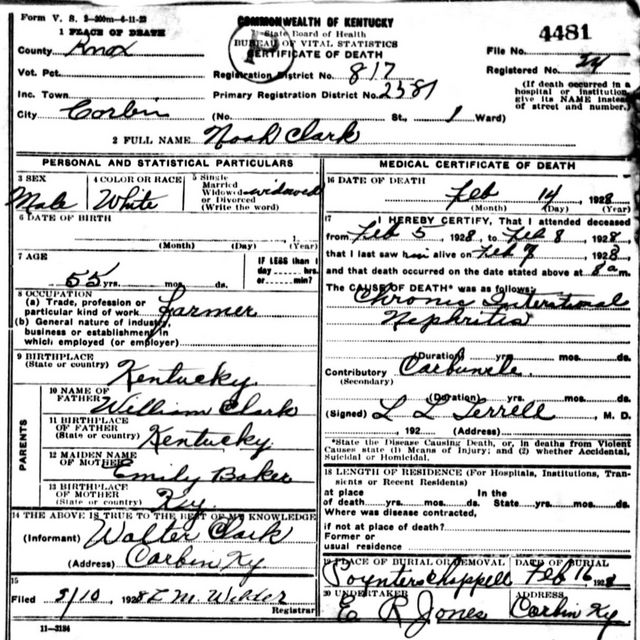 Form V. S. 3-300m-6-11-23
COMMONWEALTH OF KENTUCKY
State Board of Health
BUREAU OF VITAL STATISTICS
CERTIFICATE OF DEATH
4481
1 PLACE OF DEATH
County Knox
File No.
Vot. Pct.
Registration District No. 817
Registered No. 24
Inc. Town
Primary Registration District No. 2381
(If death occurred in a hospital or institution, give its NAME instead of street and number.)
City Corbin (No. St., 1 Ward)
2 FULL NAME Noah Clark
PERSONAL AND STATISTICAL PARTICULARS
3 SEX
Male
4 COLOR OR RACE
White
5 Single
Married
Widowed widowed
or Divorced
(Write the word)
6 DATE OF BIRTH
(Month) (Day) (Year)
7 AGE
55 yrs. mos. ds.
IF LESS than 1
day hrs.
or min?
8 OCCUPATION
(a) Trade, profession or
particular kind of work Farmer
(b) General nature of industry,
business or establishment in
which employed (or employer)
9 BIRTHPLACE
(State or country) Kentucky
PARENTS
10 NAME OF
FATHER William Clark
11 BIRTHPLACE
OF FATHER
(State or country) Kentucky
12 MAIDEN NAME
OF MOTHER Emily Baker
13 BIRTHPLACE
OF MOTHER
(State or country) Ky.
14 THE ABOVE IS TRUE TO THE BEST OF MY KNOWLEDGE
(Informant) Walter Clark
(Address) Corbin Ky
15
Filed 3/10, 1928
Registrar
11-3184
MEDICAL CERTIFICATE OF DEATH
16 DATE OF DEATH
Feb 14, 1928
(Month) (Day) (Year)
17 I HEREBY CERTIFY, That I attended deceased
from Feb 5 1928, to Feb 8, 1928,
that I last saw him alive on Feb 8, 1928,
and that death occurred on the date stated above at 8 am.
The CAUSE OF DEATH* was as follows:
Chronic Interstitional
Nephritis
(Duration) yrs. mos. ds.
Contributory Carbuncle
(Secondary)
(Duration) yrs. mos. ds.
(Signed) L L Terrell, M. D.
, 192 (Address)
*State the Disease Causing Death, or, in deaths from Violent
Causes state (1) Means of Injury; and (2) whether Accidental,
Suicidal or Homicidal.
18 LENGTH OF RESIDENCE (For Hospitals, Institutions, Tran-
sients or Recent Residents)
at place In the
of death yrs. mos. ds. State yrs. mos. ds.
Where was disease contracted,
if not at place of death?
Former or
usual residence
19 PLACE OF BURIAL OR REMOVAL
Poynters Chappell
DATE OF BURIAL
Feb 16 1928
20 UNDERTAKER
E R Jones
ADDRESS
Corbin Ky